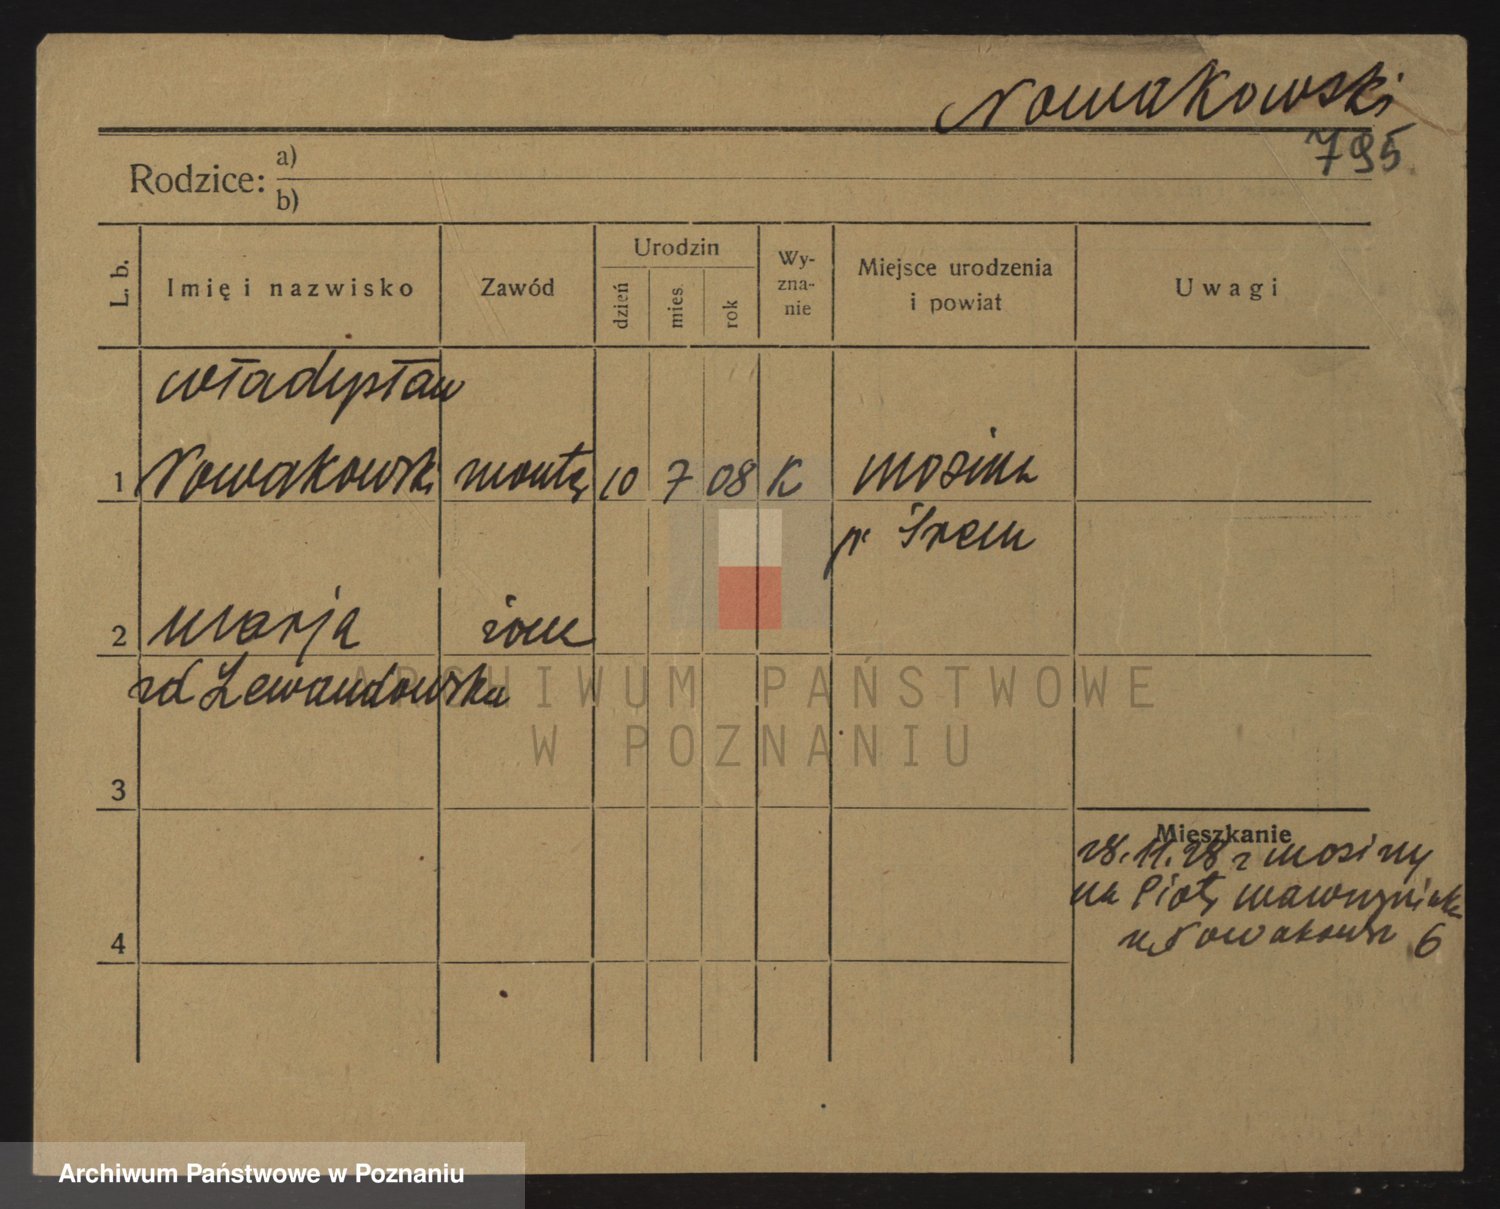 Nowakowski
795
Rodzice: a)
b)
L. b. Imię i nazwisko Zawód Urodzin dzień mies. rok Wy-zna-nie Miejsce urodzenia i powiat Uwagi
Władysław
1 Nowakowski 10 7 08 K Mosina
p Śrem
2 Marja żona
zd Lewandowska
ARCHIWUM PAŃSTWOWE
W POZNANIU
3
Mieszkanie
28.11.28 z Mosiny
na
4
6
Archiwum Państwowe w Poznaniu